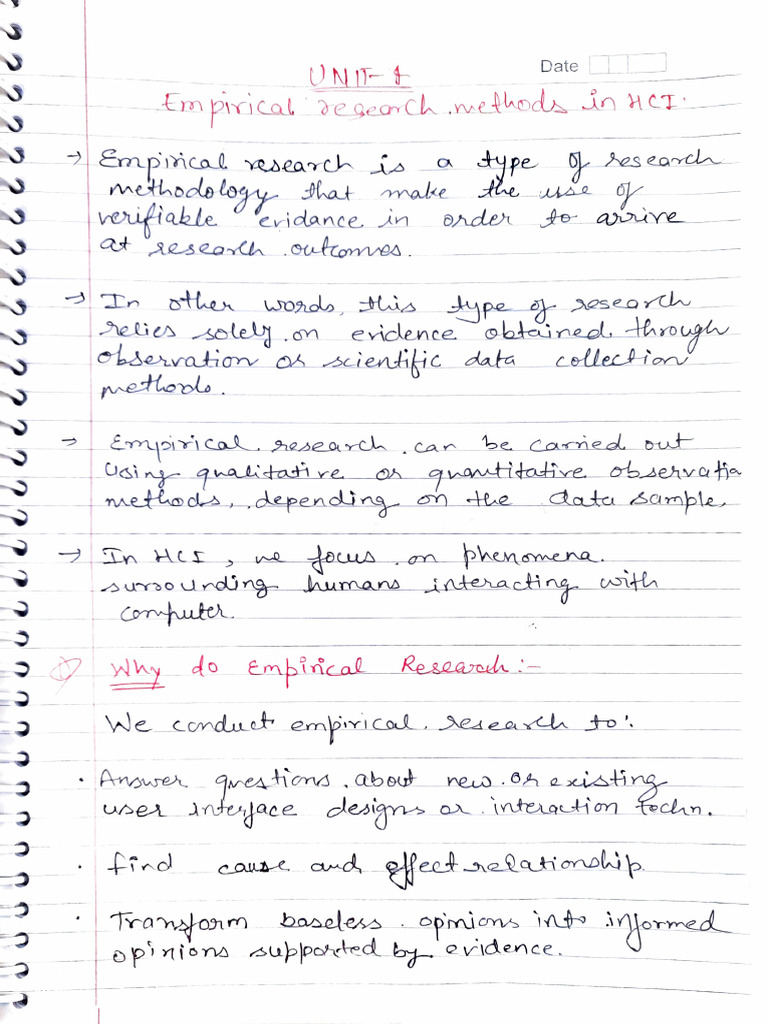 Date
UNIT-1
Empirical research methods in HCI.
→ Empirical research is a type of research
methodology that make the use of
verifiable evidance in order to arrive
at research outcomes.
→ In other words, this type of research
relies solely on evidence obtained through
observation or scientific data collection
methods.
→ Empirical research can be carried out
Using qualitative or quantitative observatio
methods, depending on the data sample.
→ In HCI, we focus on phenomena
surrounding humans interacting with
computer.
Why do Empirical Research:-
We conduct empirical research to:
· Answer questions about new or existing
user interface designs or interaction techn.
· find cause and effect relationship
· Transform baseless opinions into informed
opinions supported by evidence.